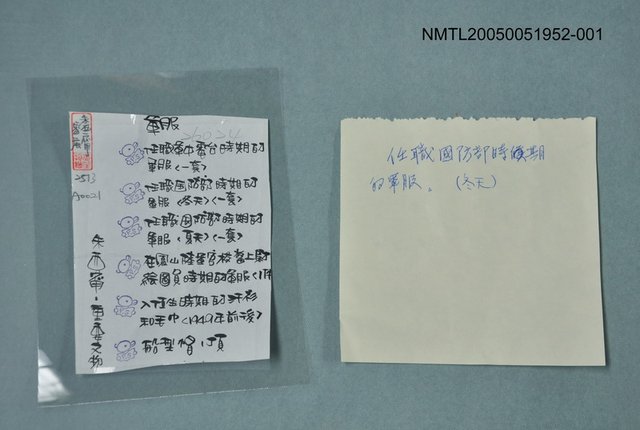 NMTL20050051952-001
軍服
26024
任職軍中電台時期的
軍服(一套)
任職國防部時期的
軍服(冬天)(一套)
任職國防部時期的
軍服(夏天)(一套)
在鳳山陸軍官校當上尉
繪圖員時期的軍服(1件
入伍生時期的汗衫
和毛巾(1949年前後)
船型帽1頂
2513
A0021
朱西甯・重要文物
任職國防部時候期
的軍服。(冬天)